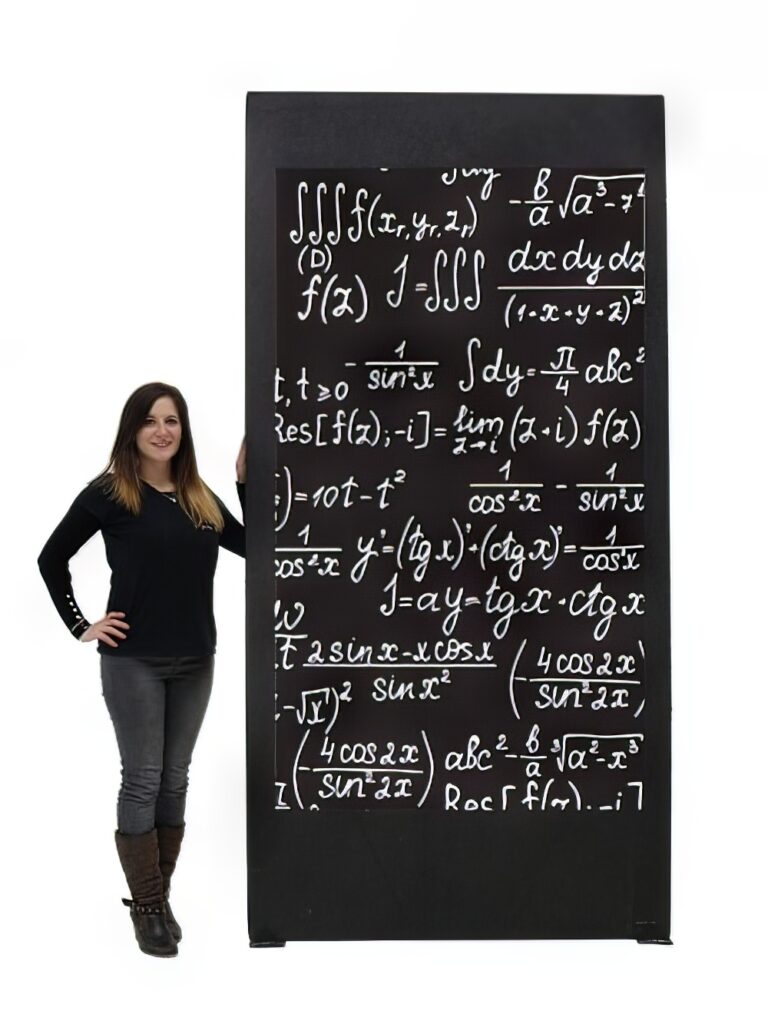 ∫∫∫ f(xᵣ, yᵣ, zᵣ) - в/a √a³-z
(D)
f(z) J = ∫∫∫ dx dy dz / (1+x+y+z)²
t, t ≥ 0 - 1/sin²x ∫dy = π/4 abc²
Res[f(z);-i] = lim z→i (z+i) f(z)
) = 10t - t² 1/cos²x - 1/sin²x
1/cos²x y' = (tg x)' + (ctg x)' = 1/cos²x
J = ay = tg x + ctg x
t 2 sin x - x cos x / sin x² (- 4 cos 2x / sin² 2x)
- √x)²
(- 4 cos 2x / sin² 2x) abc² - в/a ∛a²-x³
Res[f(z);-i]